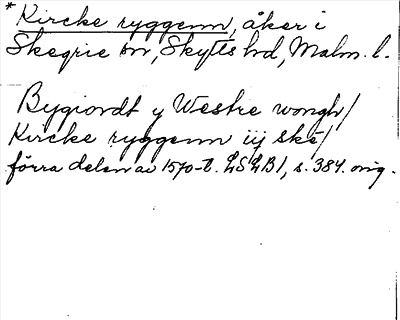 * Kircke ryggenn, åker i
Skegrie sn, Skytts hd, Malm. l.
Bygiordt y Westre wongh/
Kircke ryggenn iij ske/
förra delen av 1570-t. LSLB1, s. 384. orig.